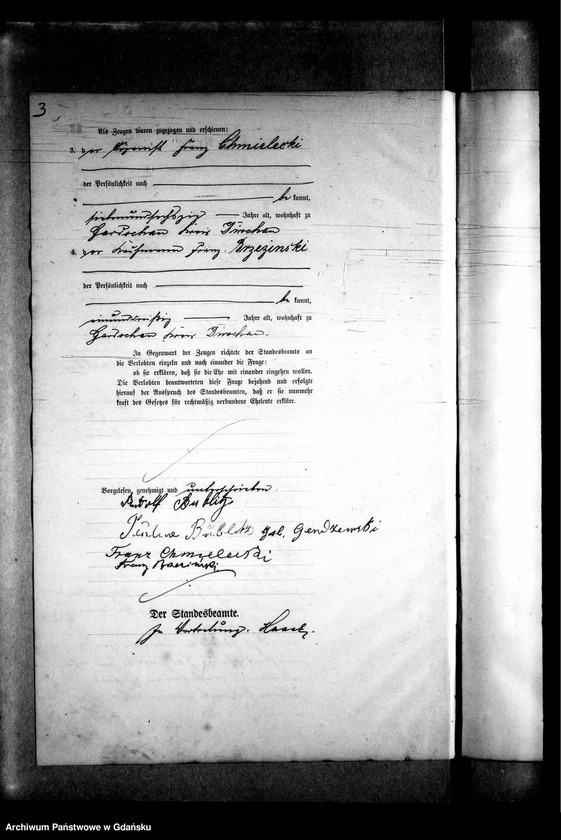 3
Als Zeugen waren zugezogen und erschienen:
3. der Franz Chmielecki
der Persönlichkeit nach
be kannt,
siebenundsechszig Jahre alt, wohnhaft zu
Gardschau Kreis Dirschau
4. der Kaufmann Franz Brzezinski
der Persönlichkeit nach
be kannt,
einunddreißig Jahre alt, wohnhaft zu
Gardschau Kreis Dirschau.
In Gegenwart der Zeugen richtete der Standesbeamte an
die Verlobten einzeln und nach einander die Frage:
ob sie erklären, daß sie die Ehe mit einander eingehen wollen.
Die Verlobten beantworteten diese Frage bejahend und erfolgte
hierauf der Ausspruch des Standesbeamten, daß er sie nunmehr
kraft des Gesetzes für rechtmäßig verbundene Eheleute erkläre.
Vorgelesen, genehmigt und unterschrieben.
Rudolf Bublitz
Bublitz geb. Gendzewski
Franz Chmielecki
Franz
Der Standesbeamte.
In Vertretung.
Archiwum Państwowe w Gdańsku